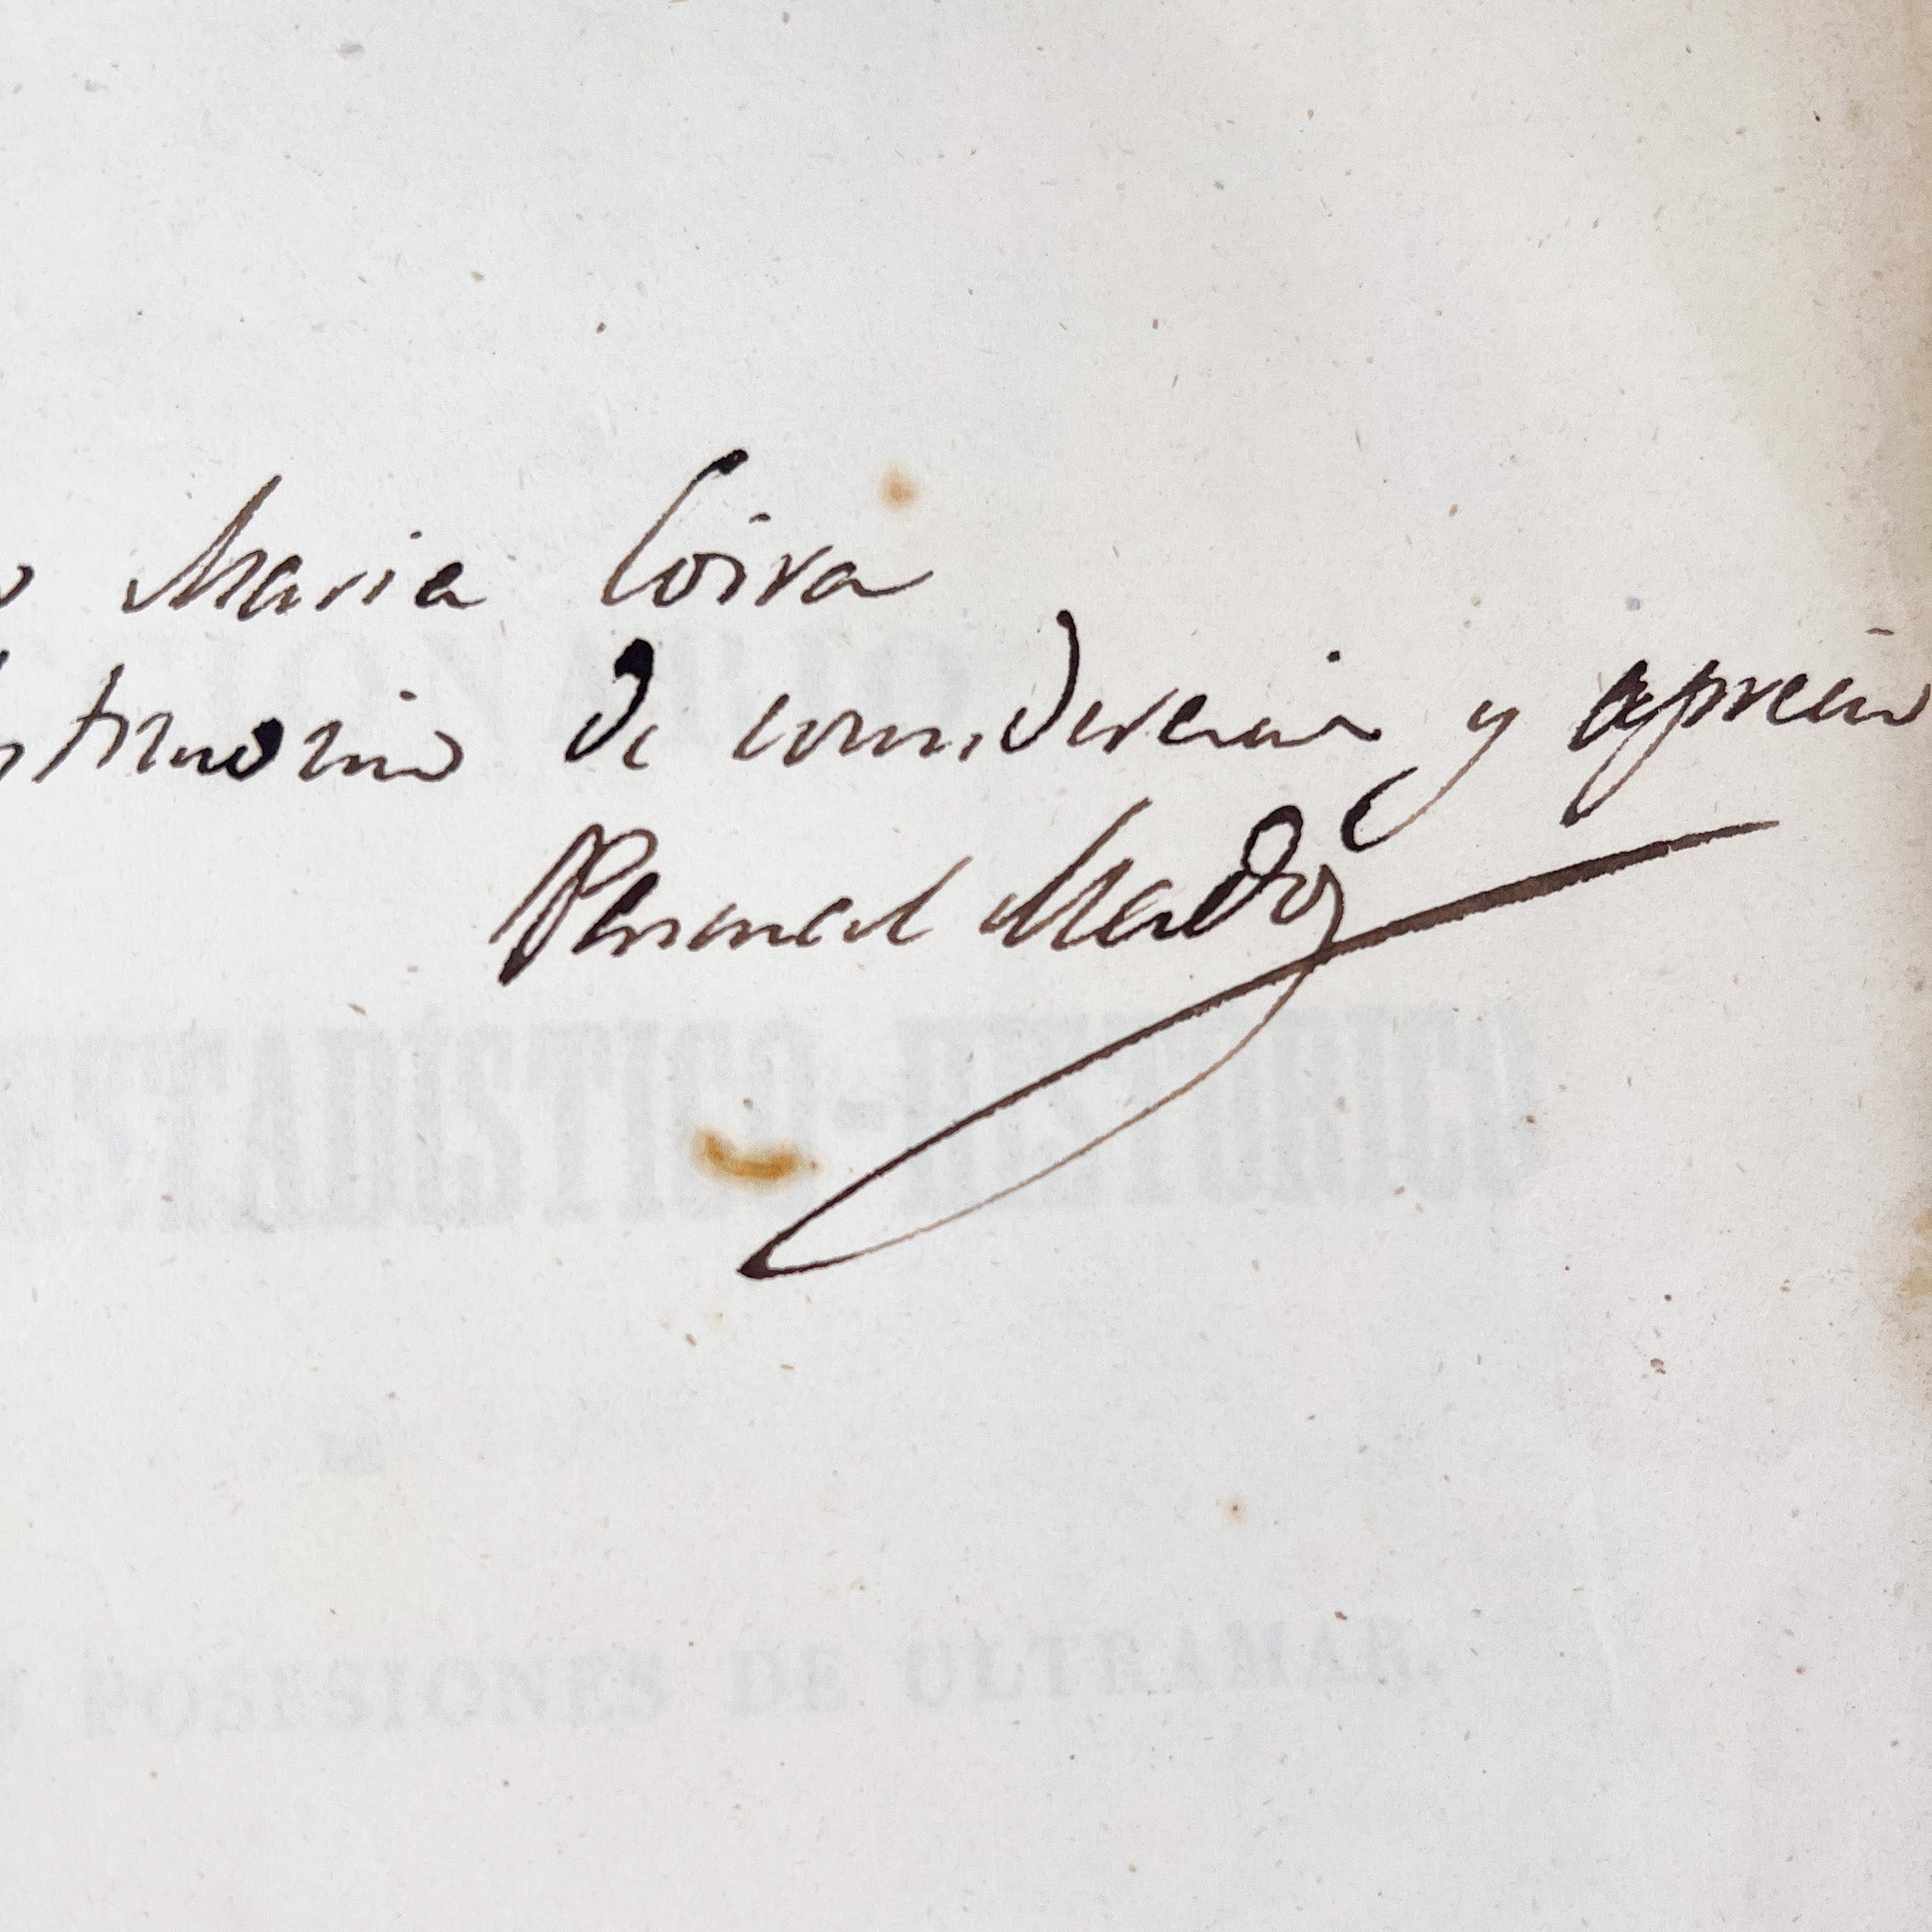 o Maria Coira
testimonio de consideracion y aprecio
Pascual Madoz
ESTADISTICO-HISTORICO
DE
S POSESIONES DE ULTRAMAR.